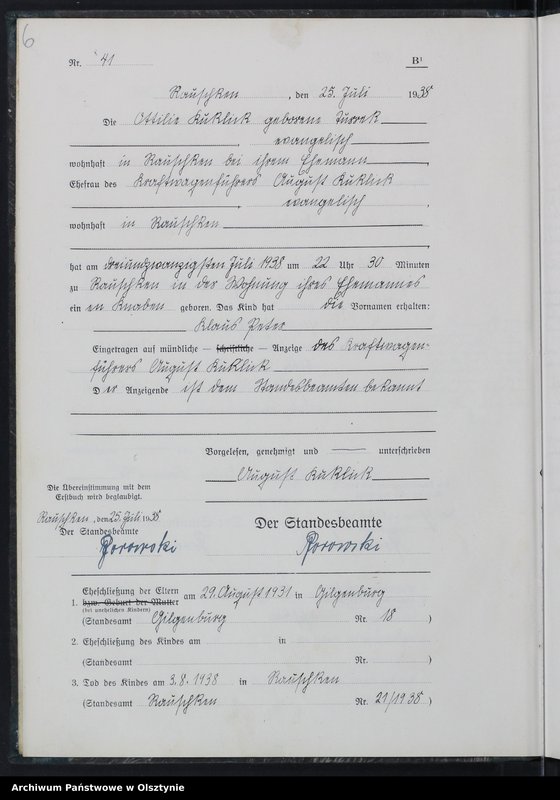 6
Nr. 41
B¹
Rauschken, den 25. Juli 1938
Die Ottilie Kuklick geborene Turrek
evangelisch
wohnhaft in Rauschken bei ihrem Ehemann
Ehefrau des Kraftwagenführers August Kuklick
evangelisch
wohnhaft in Rauschken
hat am dreiundzwanzigsten Juli 1938 um 22 Uhr 30 Minuten
zu Rauschken in der Wohnung ihres Ehemannes
ein en Knaben geboren. Das Kind hat die Vornamen erhalten:
Klaus Peter
Eingetragen auf mündliche — schriftliche — Anzeige des Kraftwagen-
führers August Kuklick
D er Anzeigende ist dem Standesbeamten bekannt
Vorgelesen, genehmigt und unterschrieben
August Kuklick
Die Übereinstimmung mit dem
Erstbuch wird beglaubigt.
Rauschken, den 25. Juli 1938
Der Standesbeamte
Borowski
Der Standesbeamte
Borowski
Eheschließung der Eltern
1. bzw. Geburt der Mutter am 29. August 1931 in Gilgenburg
(bei unehelichen Kindern)
(Standesamt Gilgenburg Nr. 18 )
2. Eheschließung des Kindes am in
(Standesamt Nr. )
3. Tod des Kindes am 3.8.1938 in Rauschken
(Standesamt Rauschken Nr. 21/1938 )
Archiwum Państwowe w Olsztynie